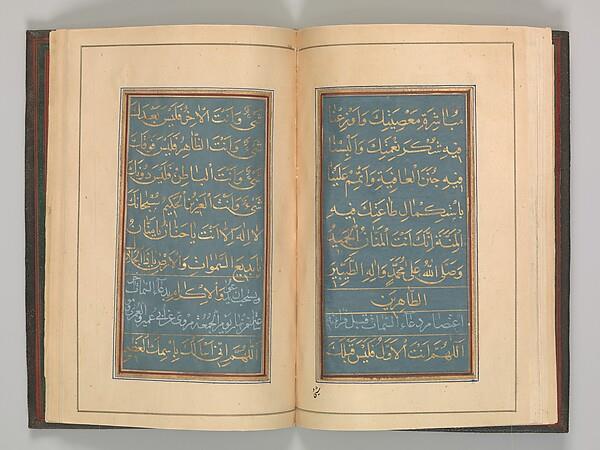 مباشرة معصيتك واوزعنا
فيه شكر نعمتك والبسنا
فيه جنن العافية واتمم علينا
باستكمال طاعتك فيه
المنة انك انت المنان الحميد
وصلى الله على محمد واله الطيبين
الطاهرين
دعاء السمات قبل
اللهم انت الاول فليس قبلك
شئ
شئ وانت الاخر فليس بعدك
شئ وانت الظاهر فليس فوقك
شئ وانت الباطن فليس دونك
شئ وانت العزيز الحكيم سبحانك
لا اله الا انت يا حنان يا منان
يا بديع السموات والارض يا ذا الجلال
والاكرام دعاء السمات
يوم الجمعة
اللهم اني اسالك باسمك العظيم